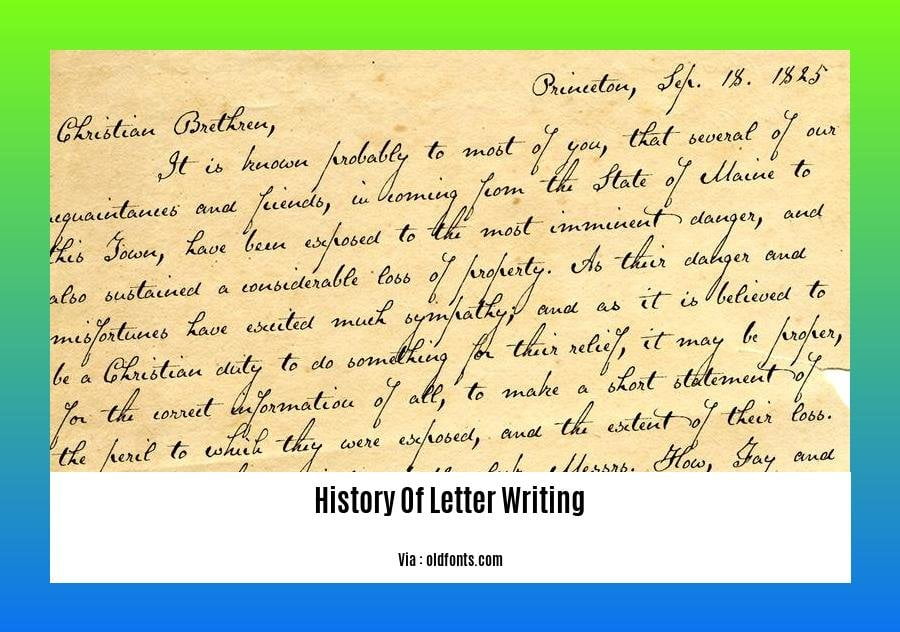 Princeton, Sep. 18. 1825
Christian Brethren,
It is known probably to most of you, that several of our
acquaintances and friends, in coming from the State of Maine to
this Town, have been exposed to the most imminent danger, and
also sustained a considerable loss of property. As their danger and
misfortunes have excited much sympathy; and as it is believed to
be a Christian duty to do something for their relief, it may be proper,
for the correct information of all, to make a short statement of
the peril to which they were exposed, and the extent of their loss.
Messrs. How, Fay and
History Of Letter Writing
Via : oldfonts.com